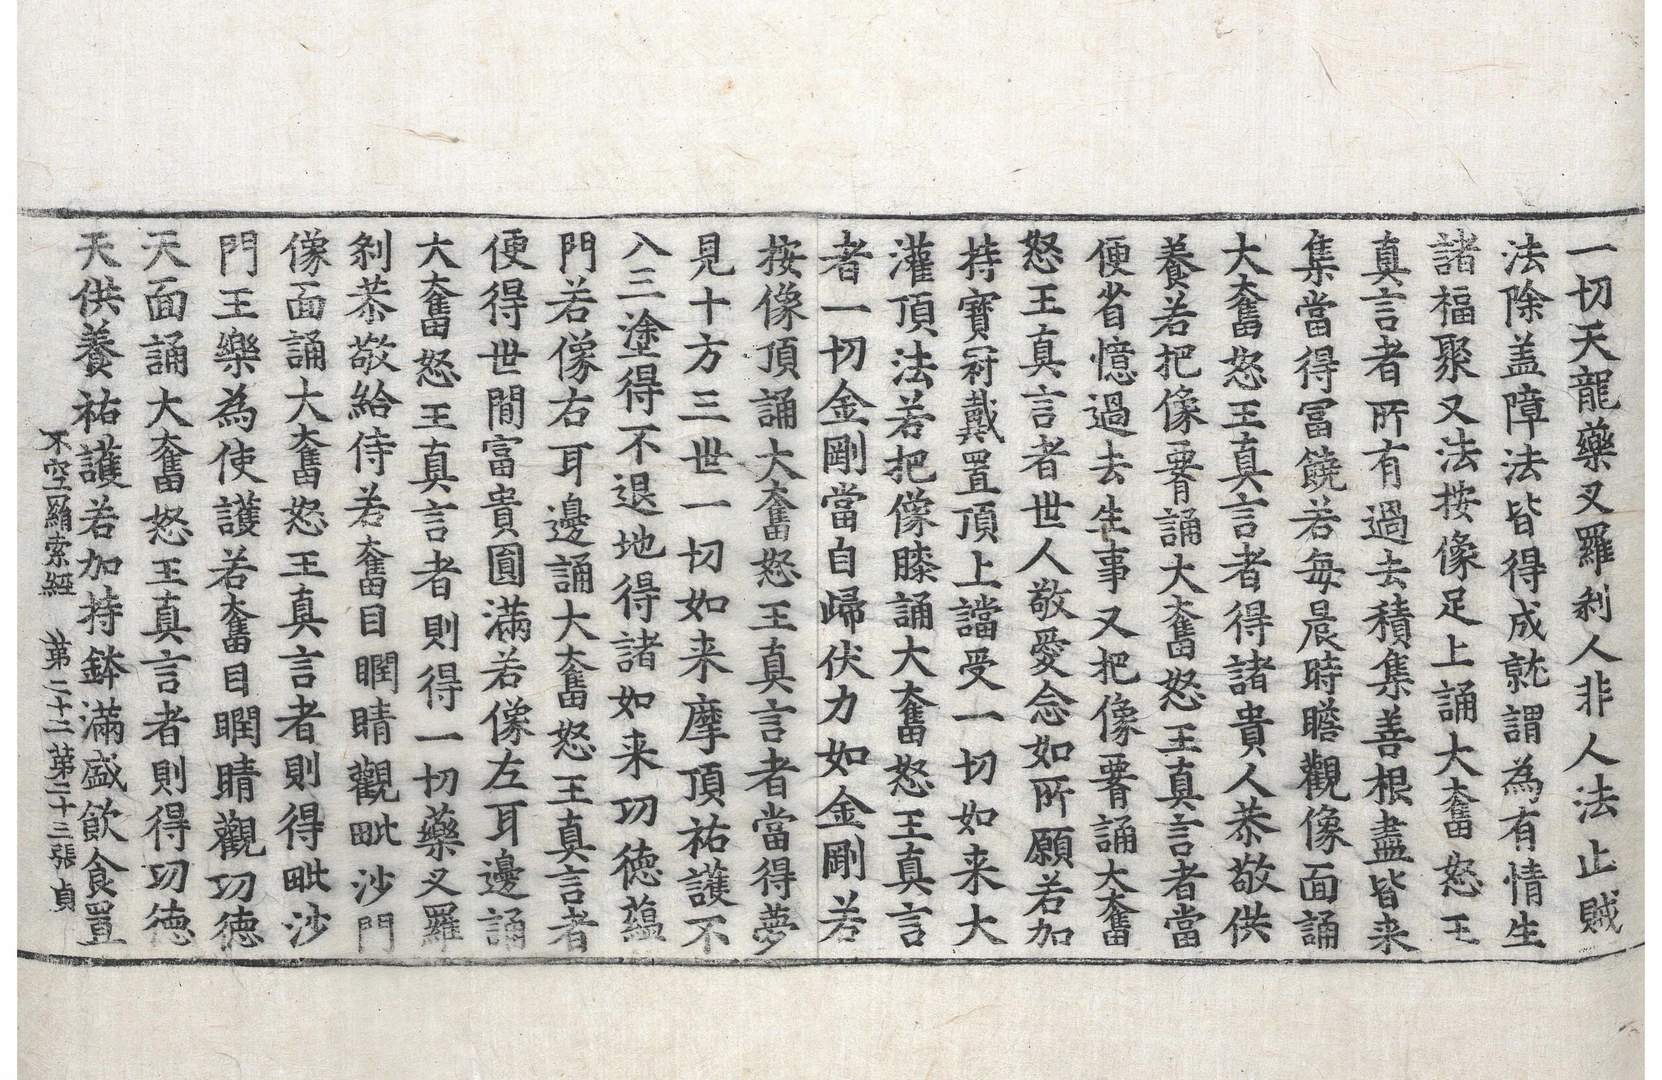 一切天龍藥叉羅刹人非人法止賊
法除盖障法皆得成就謂為有情生
諸福聚又法按像足上誦大奮怒王
真言者所有過去積集善根盡皆来
集當得冨饒若每晨時瞻觀像面誦
大奮怒王真言者得諸貴人恭敬供
養若把像䯗誦大奮怒王真言者當
便省憶過去生事又把像䯗誦大奮
怒王真言者世人敬愛念如所願若加
持寳冠戴置頂上譡受一切如来大
灌頂法若把像膝誦大奮怒王真言
者一切金剛當自歸伏力如金剛若
按像頂誦大奮怒王真言者當得夢
見十方三世一切如来摩頂祐護不
入三塗得不退地得諸如来功徳蘊
門若像右耳邊誦大奮怒王真言者
便得世間富貴圓滿若像左耳邊誦
大奮怒王真言者則得一切藥叉羅
刹恭敬給侍若奮目瞤睛觀毗沙門
像面誦大奮怒王真言者則得毗沙
門王樂為使護若奮目瞤睛觀功徳
天面誦大奮怒王真言者則得功徳
天供養祐護若加持鉢滿盛飲食置
不空羂索經　第二十二　第二十三張　貞